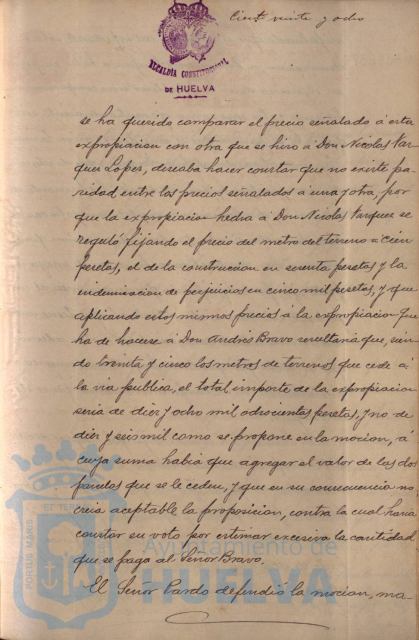 Ciento veinte y ocho
ALCALDIA CONSTITUCIONAL
DE HUELVA
se ha querido comparar el precio señalado á esta
expropiacion con otra que se hizo á Don Nicolas Vaz-
quez Lopez, deseaba hacer constar que no existe pa-
ridad entre los precios señalados á una y otra, por
que la expropiacion hecha á Don Nicolas Vazquez se
reguló fijando el precio del metro del terreno á cien
pesetas, el de la construccion en setenta pesetas y la
indemnizacion de perjuicios en cinco mil pesetas, y que
aplicando estos mismos precios á la expropiacion que
ha de hacerse á Don Andrés Bravo resultaria que, sien-
do treinta y cinco los metros de terrenos que cede á
la via publica, el total importe de la expropiacion
seria de diez y ocho mil ochocientas pesetas, y no de
diez y seis mil como se propone en la mocion, á
cuya suma habia que agregar el valor de las dos
paredes que se le ceden, y que en su consecuencia no
creia aceptable la proposicion, contra la cual haria
constar su voto por estimar excesiva la cantidad
que se paga al Señor Bravo.
El Señor Pardo defendió la mocion, ma-
PORTUS MARIS
ET TERRÆ
Ayuntamiento de
HUELVA